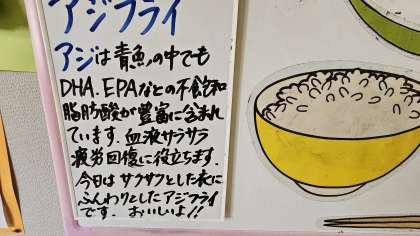 アジフライ
アジは青魚の中でも
DHA.EPAなどの不飽和
脂肪酸が豊富に含まれ
ています.血液サラサラ
疲労回復に役立ちます.
今日はサクサクとした衣に
ふんわりとしたアジフライ
です.おいしいよ!!